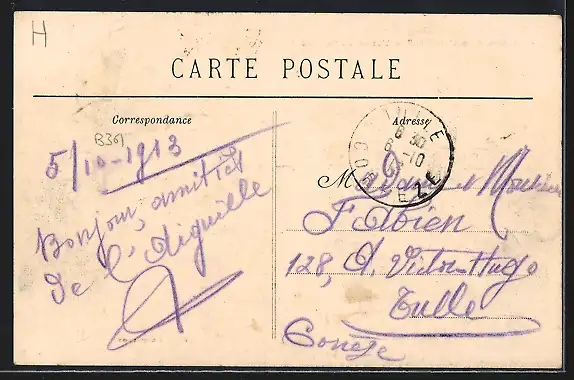 H
CARTE POSTALE
Correspondance
Adresse
B361
5/10-1913
Bonjour, amitiés
de l'Aiguille
TULLE
8 30
6 -10
CORREZE
M
Fabien
128, A. Victor-Hugo
Tulle
Corrèze